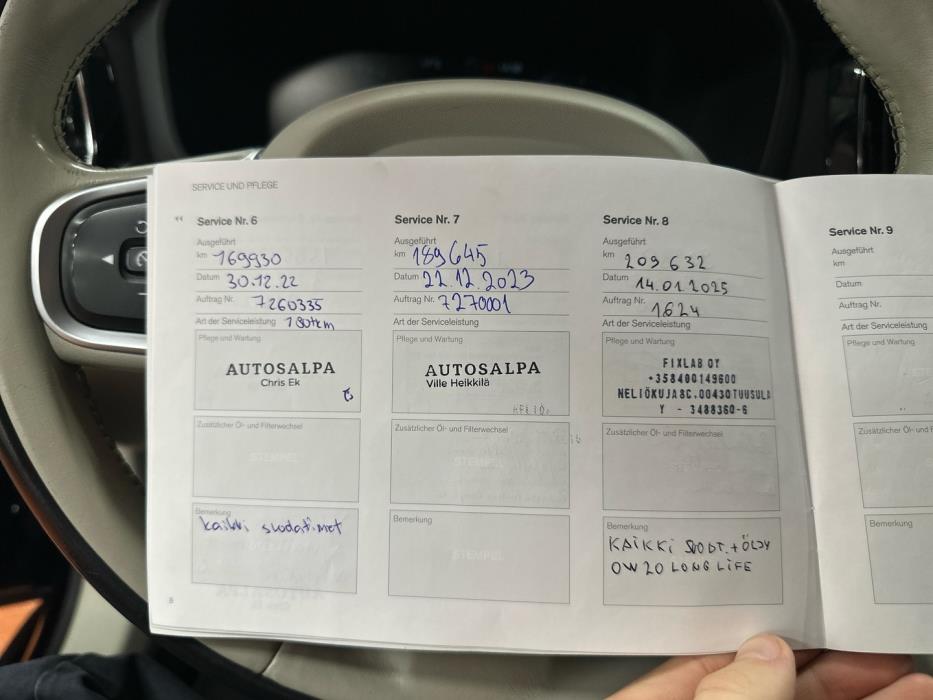 SERVICE UND PFLEGE
Service Nr. 6
Ausgeführt
km 169930
Datum 30.12.22
Auftrag Nr. 7260335
Art der Serviceleistung 180tkm
Pflege und Wartung
AUTOSALPA
Chris Ek
Zusätzlicher Öl- und Filterwechsel
STEMPEL
Bemerkung
kaikki suodattimet
8
Service Nr. 7
Ausgeführt
km 189645
Datum 22.12.2023
Auftrag Nr. 7270001
Art der Serviceleistung
Pflege und Wartung
AUTOSALPA
Ville Heikkilä
Zusätzlicher Öl- und Filterwechsel
STEMPEL
Bemerkung
STEMPEL
Service Nr. 8
Ausgeführt
km 209 632
Datum 14.01.2025
Auftrag Nr. 1624
Art der Serviceleistung
Pflege und Wartung
FIXLAB OY
+358400149600
NELIÖKUJA8C.00430TUUSULA
Y - 3488360-6
Zusätzlicher Öl- und Filterwechsel
Bemerkung
KAIKKI SUODT. + ÖLJY
0W20 LONG LIFE
Service Nr. 9
Ausgeführt
km
Datum
Auftrag Nr.
Art der Serviceleistung
Pflege und Wartung
Zusätzlicher Öl- und F
Bemerkung